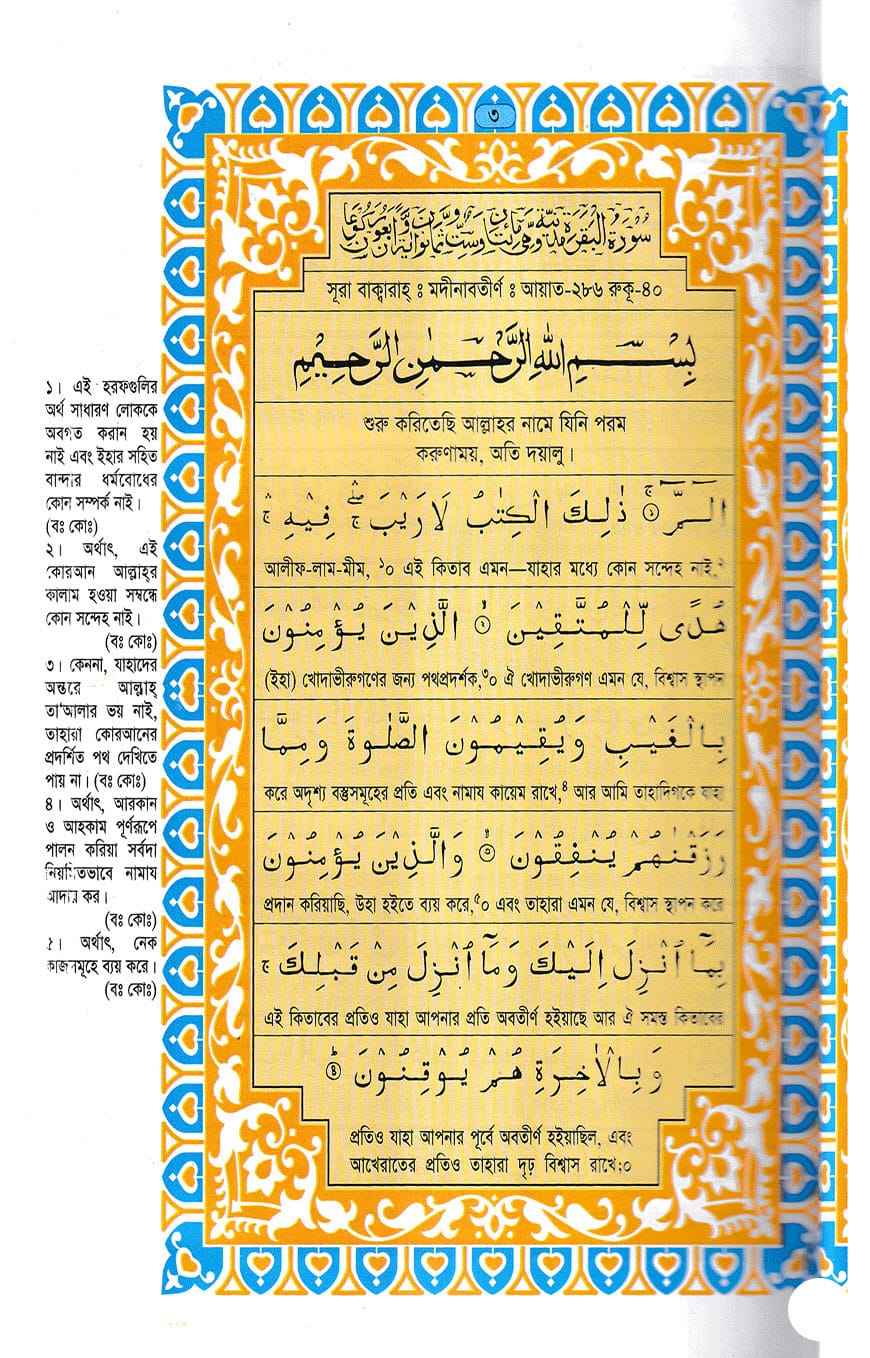 ৩
سُورَةُ الْبَقَرَةِ مَدَنِيَّةٌ وَّهِيَ مِائَتَانِ وَسِتٌّ وَّثَمَانُوْنَ اٰيَةً وَّاَرْبَعُوْنَ رُكُوْعًا
সূরা বাক্বারাহ্ ঃ মদীনাবতীর্ণ ঃ আয়াত-২৮৬ রুকূ-৪০
بِسْمِ اللهِ الرَّحْمٰنِ الرَّحِيْمِ
শুরু করিতেছি আল্লাহর নামে যিনি পরম
করুণাময়, অতি দয়ালু।
الٓـمّٓ ۚ۝۱ ذٰلِكَ الْكِتٰبُ لَا رَيْبَ ۛۖۚ فِيْهِ ۛۚ
আলীফ-লাম-মীম, ১০ এই কিতাব এমন—যাহার মধ্যে কোন সন্দেহ নাই,২
هُدًى لِّلْمُتَّقِيْنَ ۙ۝ الَّذِيْنَ يُؤْمِنُوْنَ
(ইহা) খোদাভীরুগণের জন্য পথপ্রদর্শক,৩০ ঐ খোদাভীরুগণ এমন যে, বিশ্বাস স্থাপন
بِالْغَيْبِ وَيُقِيْمُوْنَ الصَّلٰوةَ وَمِمَّا
করে অদৃশ্য বস্তুসমূহের প্রতি এবং নামায কায়েম রাখে,৪ আর আমি তাহাদিগকে যাহা
رَزَقْنٰهُمْ يُنْفِقُوْنَ ۙ۝ وَالَّذِيْنَ يُؤْمِنُوْنَ
প্রদান করিয়াছি, উহা হইতে ব্যয় করে,৫০ এবং তাহারা এমন যে, বিশ্বাস স্থাপন করে
بِمَآ اُنْزِلَ اِلَيْكَ وَمَآ اُنْزِلَ مِنْ قَبْلِكَ ۚ
এই কিতাবের প্রতিও যাহা আপনার প্রতি অবতীর্ণ হইয়াছে আর ঐ সমস্ত কিতাবের
وَبِالْاٰخِرَةِ هُمْ يُوْقِنُوْنَ ؕ۝۴
প্রতিও যাহা আপনার পূর্বে অবতীর্ণ হইয়াছিল, এবং
আখেরাতের প্রতিও তাহারা দৃঢ় বিশ্বাস রাখে;০
১। এই হরফগুলির
অর্থ সাধারণ লোককে
অবগত করান হয়
নাই এবং ইহার সহিত
বান্দার ধর্মবোধের
কোন সম্পর্ক নাই।
(বঃ কোঃ)
২। অর্থাৎ, এই
কোরআন আল্লাহ্‌র
কালাম হওয়া সম্বন্ধে
কোন সন্দেহ নাই।
(বঃ কোঃ)
৩। কেননা, যাহাদের
অন্তরে আল্লাহ্
তা'আলার ভয় নাই,
তাহারা কোরআনের
প্রদর্শিত পথ দেখিতে
পায় না। (বঃ কোঃ)
৪। অর্থাৎ, আরকান
ও আহকাম পূর্ণরূপে
পালন করিয়া সর্বদা
নিয়মিতভাবে নামায
আদায় করে।
(বঃ কোঃ)
৫। অর্থাৎ, নেক
কাজসমূহে ব্যয় করে।
(বঃ কোঃ)